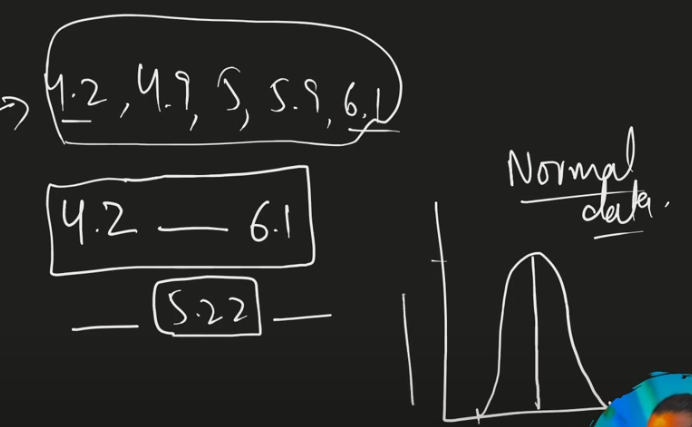 4.2, 4.9, 5, 5.9, 6.1
4.2 — 6.1
— 5.22 —
Normal
data.